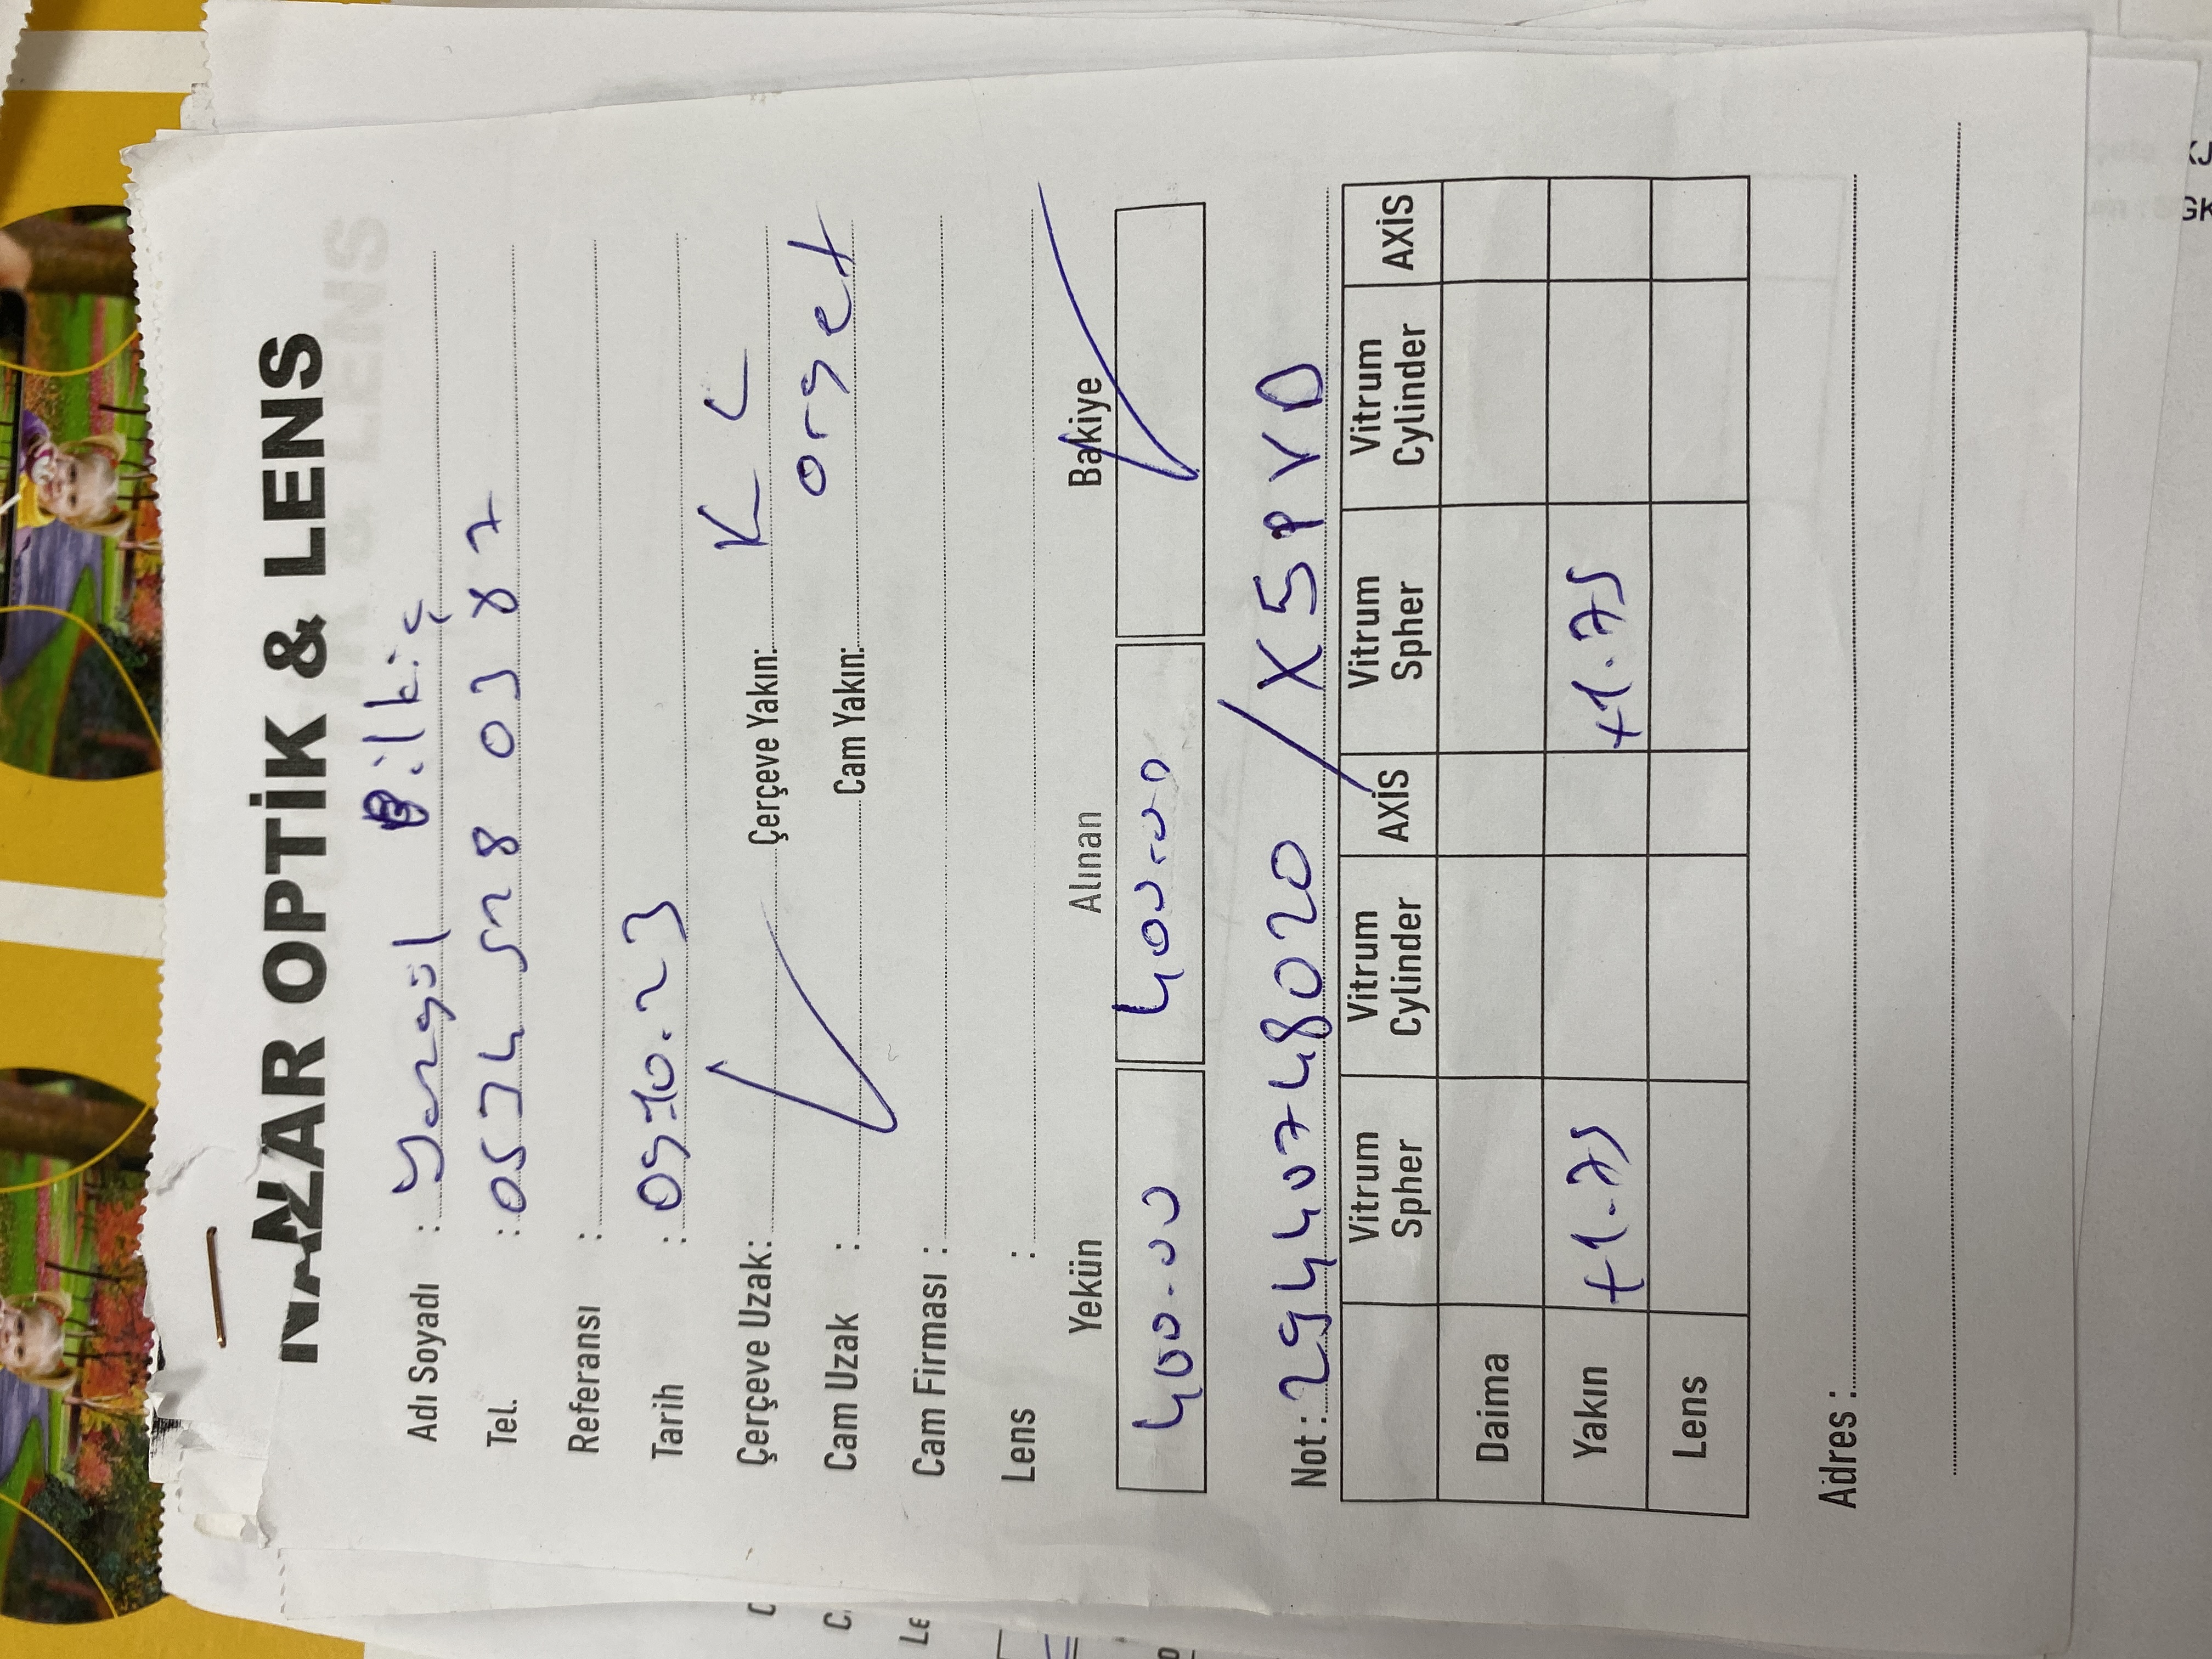 NAZAR OPTİK & LENS
Adı Soyadı : Yazgül Bilkiç
Tel. : 0534 528 03 87
Referansı :
Tarih : 09.10.23
Çerçeve Uzak: Çerçeve Yakın: K C
Cam Uzak : Cam Yakın: orget
Cam Firması :
Lens :
Yekün Alınan Bakiye
400.00 400.00
Not : 29440748020 / X5PVD
Vitrum Spher Vitrum Cylinder AXİS Vitrum Spher Vitrum Cylinder AXİS
Daima
Yakın +1.75 +1.75
Lens
Adres :